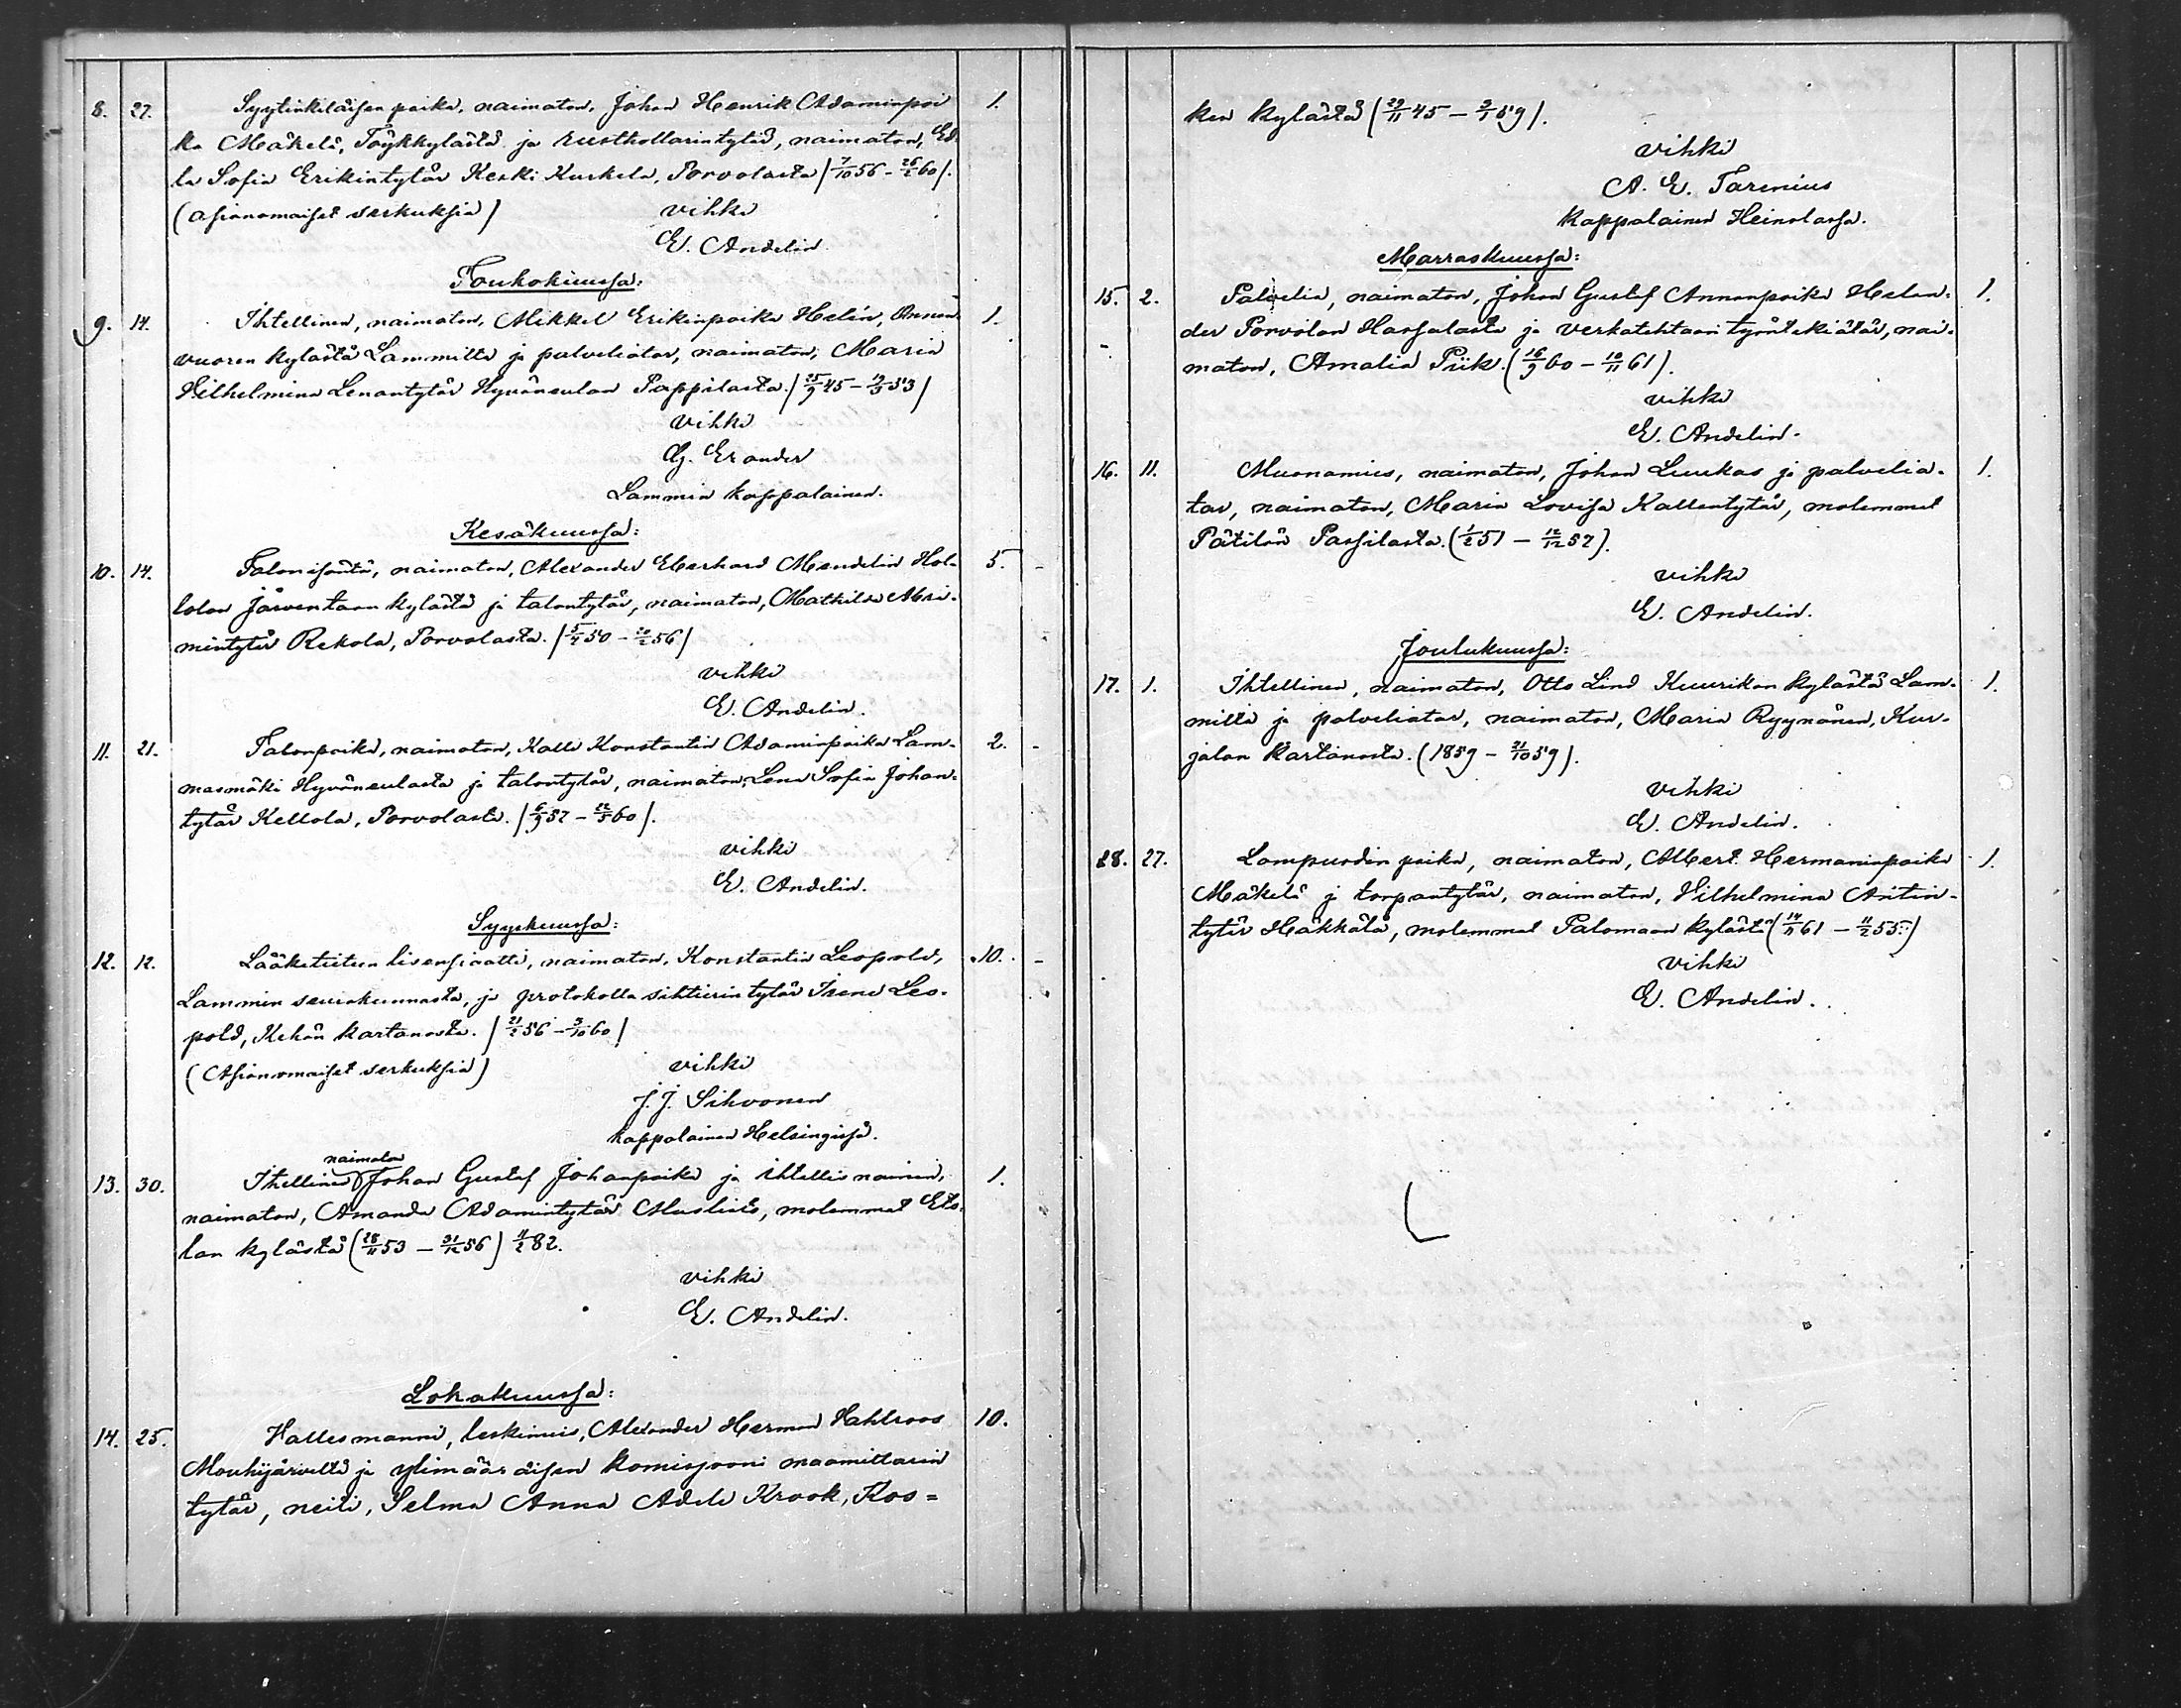 8. 27. Syytinkiläisen poika, naimaton, Johan Henrik Adaminpoi
ka Mäkelä, Töykkylästä ja rusthollarintytär, naimaton, Ed-
la Sofia Erikintytär Keski Kuskela, Porvolasta (7/10 56 - 26/2 60). 1.
(Asianomaiset serkuksia) vihki
E. Andelin.
Toukokuussa:
9. 14. Ihtellinen, naimaton, Mikkel Erikinpoika Helin, 1.
vuoren kylästä Lammilta ja palveliatar, naimaton, Maria
Wilhelmina Lenantytär Hyväneulan Pappilasta. (25/9 45 - 19/3 53)
vihki
G. Erander
Lammin kappalainen.
Kesäkuussa:
10. 14. Talonisäntä, naimaton, Alexander Eberhard Mendelin Hol- 5.
lolan Järventaan kylästä ja talontytär, naimaton, Mathilda Abra-
mintytär Rekola, Porvolasta. (5/4 50 - 20/2 56)
vihki
E. Andelin.
11. 21. Talonpoika, naimaton, Kalle Konstantin Adaminpoika Lam- 2.
masmäki Hyväneulasta ja talontytär, naimaton, Lena Sofia Johan-
tytär Kellola, Porvolasta. (6/9 57 - 22/5 60).
vihki
E. Andelin.
Syyskuussa:
12. 12. Lääketieteen lisensiaatti, naimaton, Konstantin Leopold, 10.
Lammin seurakunnasta, ja protokolla sihtierin tytär Irene Leo-
pold, Kehän kartanosta. (21/2 56 - 3/10 60)
(Asianomaiset serkuksia) vihki
J. J. Sihvonen
kappalainen Helsingissä.
naimaton
13. 30. Ihtellinen Johan Gustaf Johanpoika ja ihtellis nainen, 1.
naimaton, Amanda Adamintytär Muslists, molemmat Eto-
lan kylästä (28/11 53 - 31/12 56) 11/2 82.
vihki
E. Andelin.
Lokakuussa:
14. 25. Vallesmanni, leskimies, Alexander Herman Wahlroos 10.
Mouhijärveltä ja ylimääräisen komisjooni maamittarin
tytär, neiti, Selma Anna Adele Krook, Kos=
ken kylästä (29/11 45 - 3/1 59).
vihki
A. E. Tarenius
Kappalainen Heinolassa.
Marraskuussa:
15. 2. Palvelia, naimaton, Johan Gustaf Annanpoika Helan- 1.
der Porvolan Hassalasta ja Verkatehtaan työntekiätär, nai-
maton, Amalia Piik. (16/9 60 - 10/11 61).
vihki
E. Andelin.
16. 11. Muonamies, naimaton, Johan Luukas ja palvelia- 1.
tar, naimaton, Maria Lovisa Kallentytär, molemmat
Pätilän Passilasta. (1/2 51 - 12/12 52).
vihki
E. Andelin.
Joulukuussa:
17. 1. Ihtellinen, naimaton, Otto Lind Kuurikan kylästä Lam- 1.
milta ja palveliatar, naimaton, Maria Ryynänen, Kur-
jalan kartanosta. (1859 - 21/10 59).
vihki
E. Andelin.
28. 27. Lampuodin poika, naimaton, Albert Hermaninpoika 1.
Mäkelä ja torpantytär, naimaton, Vilhelmina Antin-
tytär Häkkälä, molemmat Palomaan kylästä (14/11 61 - 11/2 55)
vihki
E. Andelin.